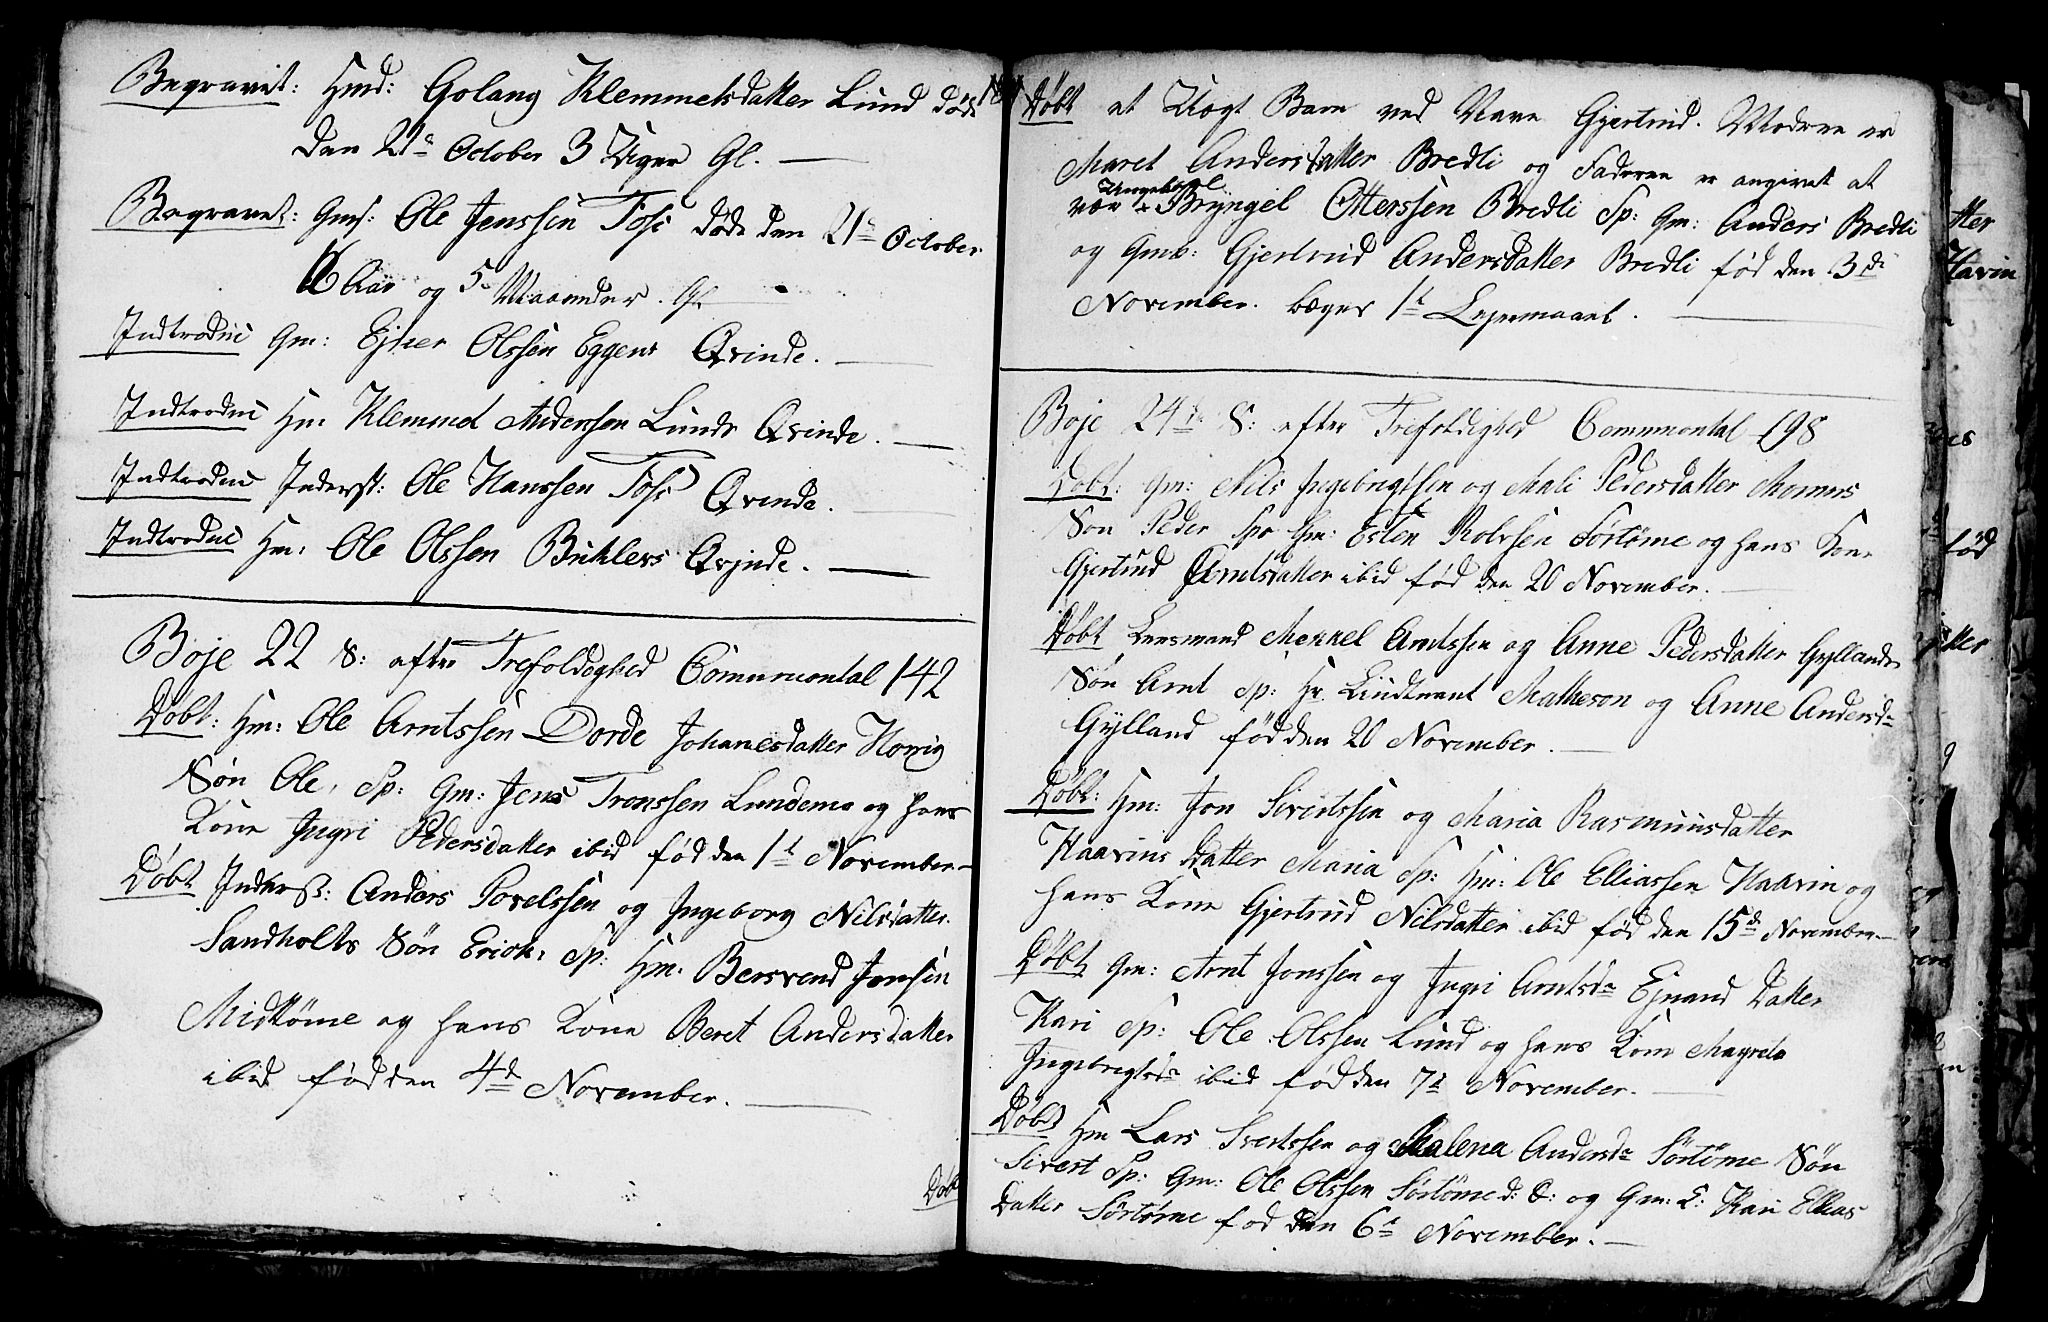 Begravet: Hmd: Golaug Klemmetsdatter Lund døde
den 21de October 3 Uger Gl.
Begravet: Gmf: Ole Jenssen Foss døde den 21de October
Aar og 5 Maaneder. Gl
Indtroduc Gm: Ejner Olssen Eggens Qvinde.
Indtroduc Hm: Klemmed Anderssen Lunds Qvinde.
Indtroduc Inderst: Ole Hanssen Foss Qvinde.
Indtroduc Hm: Ole Olssen Buhlers Qvjnde.
Boje 22 S: efter Trefoldighed Communontal 142
Døbt: Hm: Ole Arntssen Dorde Johanesdatter Hovig
Søn Ole, Sp: Gm: Jens Tronssen Lundemo og hans
Kone Ingri Pedersdatter ibid fød den 1t November
Døbt Inderst: Anders Povelssen og Ingeborg Nilsdatter
Sandholts Søn Erick: Sp: Hm: Bersvend Jonsen
Midtøme og hans Kone Beret Andersdatter
ibid fød den 4de November.
Døbt
Døbt et Uægt Barn ved Navn Gjertrud. Moderen er
Maret Andersdatter Bredli og Faderen er angivet at
være Ungekarl Bryngel Otterssen Bredli Sp: Gm: Anders Bredli
og Gmd: Gjertrud Andersdatter Bredli fød den 3de
November. begges 1t Lejermaal.
Boje 24de S: efter Trefoldighed Communontal 198
Døbt: Gm: Nils Ingebrigtsen og Mali Pedersdatter Momus
Søn Peder Sp: Gm: Esten Rolvsen Sørtøme og hans Kone
Gjertrud Arntsdatter ibid fød den 20 November.
Døbt Lensmand Mekkel Arntssen og Anne Pedersdatter Gyllands
Søn Arnt Sp: Hr Liudtnant Matheson og Anne Andersdr
Gylland fød den 20 November.
Døbt: Hm: Jon Sivertssen og Maria Rasmuusdatter
Haavins Datter Maria Sp: Hm: Ole Elliassen Haavin og
hans Kone Gjertrud Nilsdatter ibid fød den 15de November
Døbt Gm: Arnt Jonssen og Ingri Arntsdr Ejnand Datter
Kari Sp: Ole Olssen Lund og hans Kone Magreta
Ingebrigtsdr ibid fød den 7de November.
Døbt Hm Lars Svertssen og Malena Andersdr Sørtøme Søn
Sivert Sp: Gm: Ole Olssen Sørtøme d: Æ: og Gm: E: Kari Ellias
Datter Sørtøme fød den 6te November.